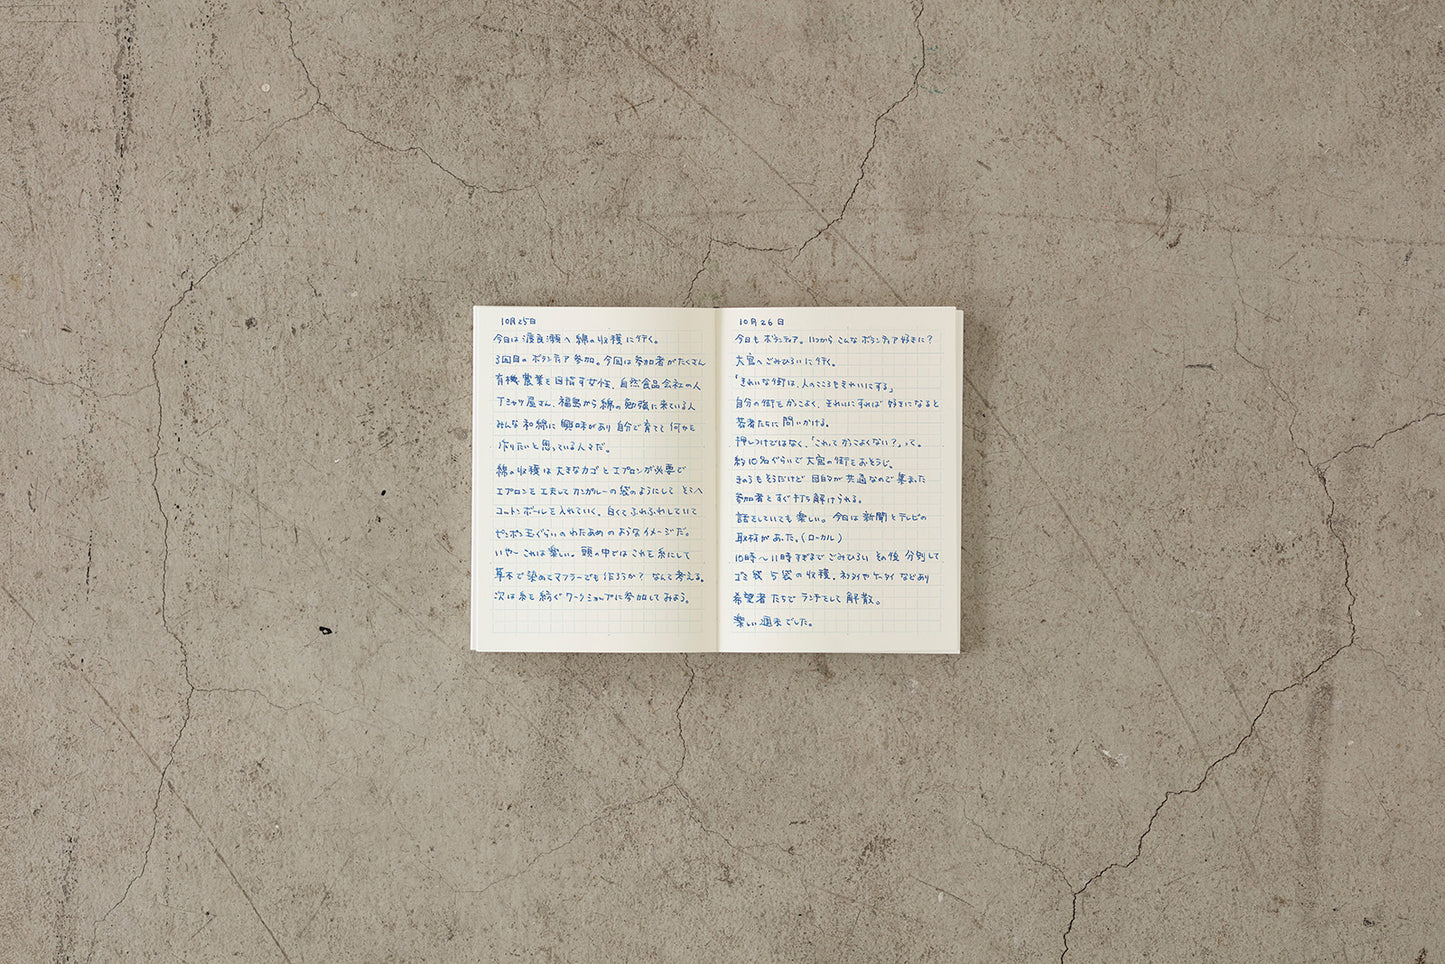 10月25日
今日は渡良瀬へ綿の収穫に行く。
3回目のボランティア参加。今回は参加者がたくさん
有機農業を目指す女性、自然食品会社の人
Tシャツ屋さん、福島から綿の勉強に来ている人
みんな和綿に興味があり自分で育てて何かを
作りたいと思っている人々だ。
綿の収穫は大きなカゴとエプロンが必要で
エプロンを工夫してカンガルーの袋のようにして そこへ
コットンボールを入れていく。白くてふわふわしていて
ピンポン玉ぐらいのわたあめのようなイメージだ。
いや〜これは楽しい。頭の中ではこれを糸にして
草木で染めてマフラーでも作ろうか？なんて考える。
次は糸を紡ぐワークショップに参加してみよう。
10月26日
今日もボランティア。いつからこんなボランティア好きに？
大宮へごみひろいに行く。
「きれいな街は、人のこころもきれいにする」
自分の街をかっこよく、きれいにすれば好きになると
若者たちに問いかける。
押しつけではなく、「これってかっこよくない？」って。
約10名ぐらいで大宮の街をおそうじ。
きのうもそうだけど 目的が共通なので集まった
参加者とすぐ打ち解けられる。
話をしていても楽しい。今日は新聞とテレビの
取材があった。(ローカル)
10時〜11時すぎまでごみひろい その後 分別して
ゴミ袋5袋の収穫。ネクタイやケータイなどあり
希望者たちでランチをして解散。
楽しい週末でした。